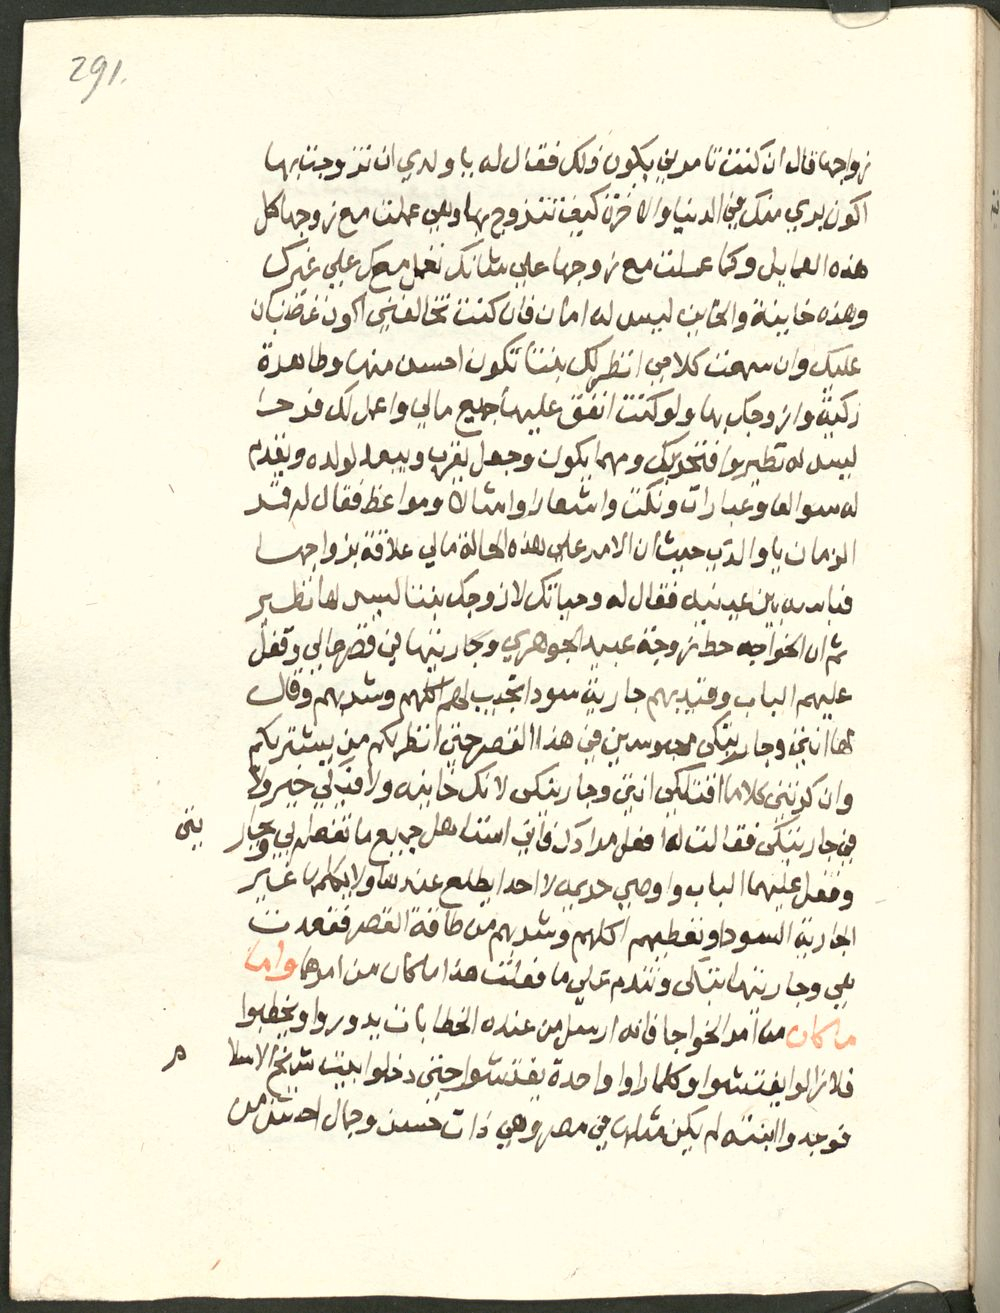 291.
زواجها قال ان كنت تامرني يكون ذلك فقال له يا ولدي ان تزوجت بها
اكون بري منك في الدنيا والاخرة كيف تتزوج بها وهي عملت مع زوجها كل
هذه العمايل وكما عملت مع زوجها علي شانك تعمل معك علي غيرك
وهذه خاينة والخاين ليس له امان فان كنت تخالفني اكون غضبان
عليك وان سمعت كلامي انظر لك بنتا تكون احسن منها وطاهرة
زكية وازوجك بها ولو كنت انفق عليها جميع مالي واعمل لك فرحا
ليس له نظير وافتخر بك ومهما يكون وجعل يقرب ويبعد لولده ويقدم
له سوالفا وعبارات ونكت واشعارا وامثالا ومواعظ فقال له قمر
الزمان يا والدي حيث ان الامر علي هذه الحالة مالي علاقة بزواجها
فباسه بين عينيه فقال له وحياتك لازوجك بنتا ليس لها نظير
ثم ان الخواجه حط زوجة عبيد الجوهري وجاريتها في قصر عالي وقفل
عليهم الباب وقيد بهم جارية سودا تجيب لهم اكلهم وشربهم وقال
لها انتي وجاريتكي محبوسين في هذا القصر حتي انظر لكم من يشتريكم
وان كررتني كلاما اقتلكي انتي وجاريتكي لانك خاينه ولا فيكي خير ولا
في جاريتكي فقالت له افعل مرادك فاني استاهل جميع ما تفعله بي وبجار يتي
وقفل عليهما الباب واوصي حريمه لا احدا يطلع عندها ولا يكلمها غير
الجارية السودا وتعطيهم اكلهم وشربهم من طاقة القصر فقعدت
هي وجاريتها تبكي وتندم علي ما فعلت هذا ما كان من امرها واما
ما كان من امر الخواجا فانه ارسل من عنده الخطابات يدوروا ويخطبوا
فلا زالوا يفتشوا وكلما راوا واحدة يفتشوا حتي دخلوا بيت شيخ الاسلا م
فوجدوا ابنته لم يكن مثلها في مصر وهي ذات حسن وجمال احسن من